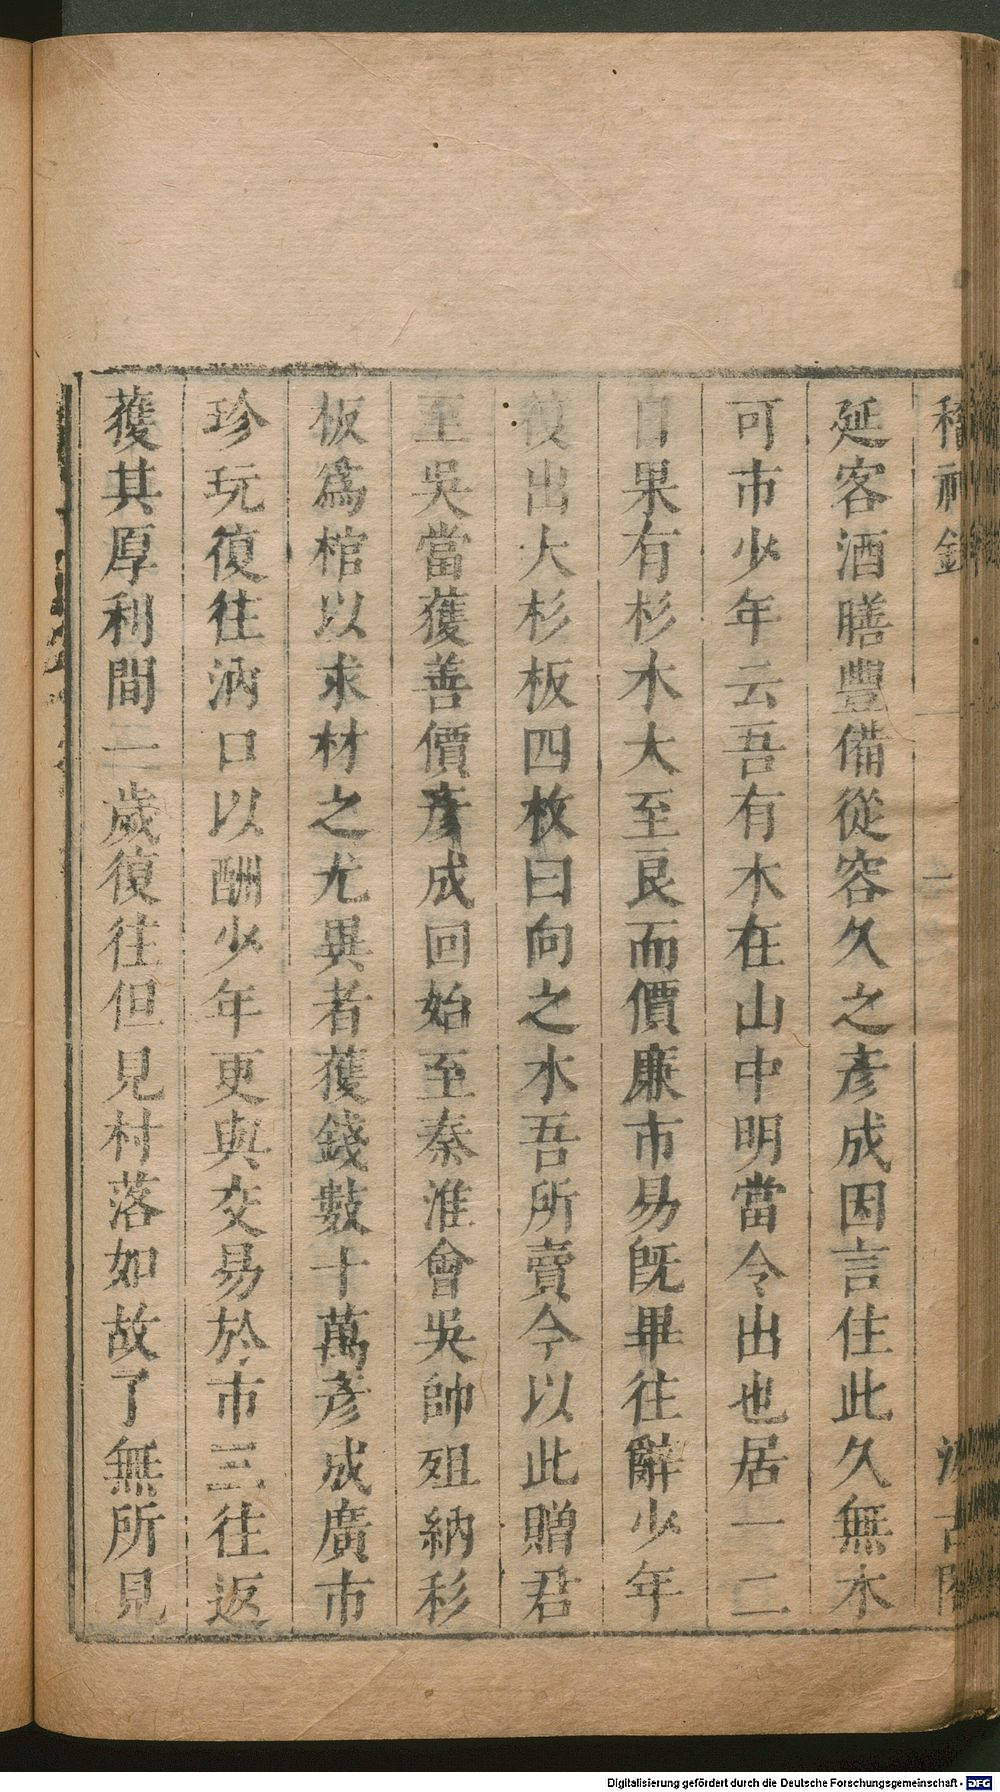 稽神錄
汲古閣
延客酒膳豐備從容久之彥成因言住此久無木
可市少年云吾有木在山中明當令出也居一二
日果有杉木大至良而價廉市易既畢往辭少年
復出大杉板四枚曰向之水吾所賣今以此贈君
至吳當獲善價彥成回始至秦淮會吳帥殂納杉
板爲棺以求材之尤異者獲錢數十萬彥成廣市
珍玩復往汭口以酬少年更與交易於市三往返
獲其厚利間一歲復往但見村落如故了無所見
Digitalisierung gefördert durch die Deutsche Forschungsgemeinschaft - DFG